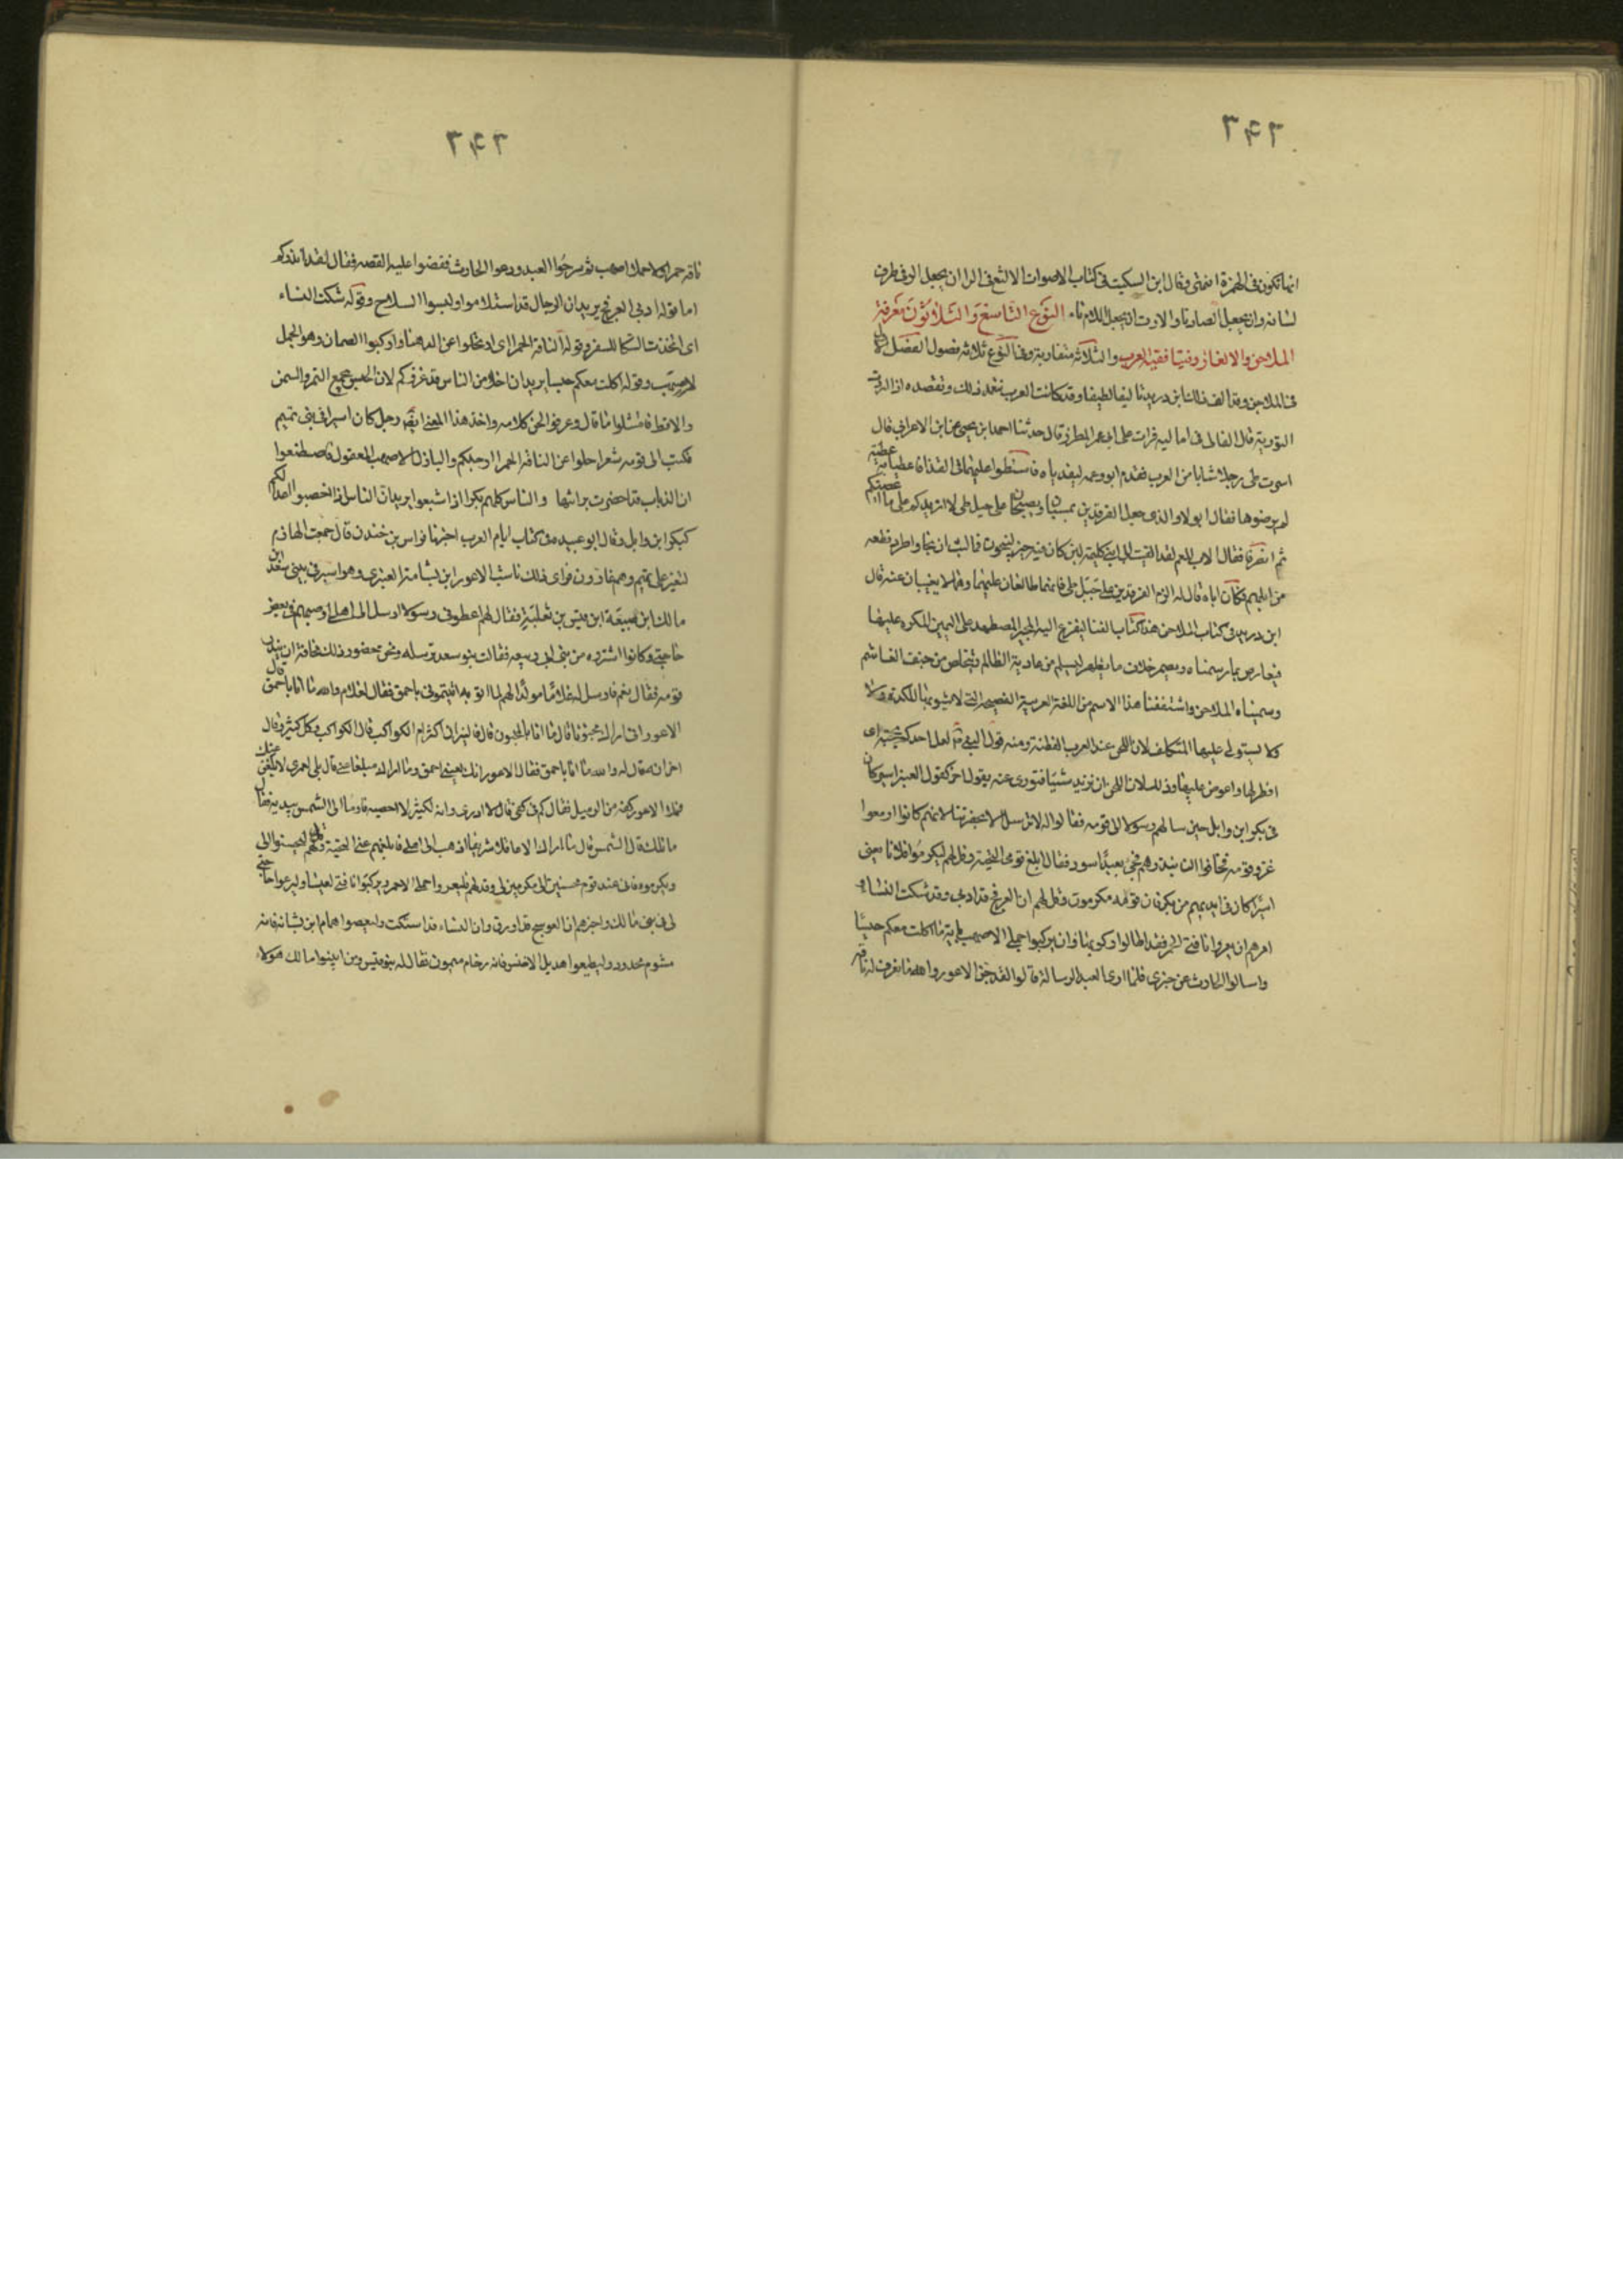 ٣٤٦
انما تكون فى الهمزة انتهى وقال ابن السكيت فى كتاب الاصوات الالثغ فى الرا ان يجعل الر فى طرف
لسانه وان يجعل الصاد ثا والارت ان يجعل اللام تاء النوع التاسع والثلاثون معرفة
الملاحن والالغاز وفتيا فقيه العرب والثلاثة متقاربة وفى النوع ثلاثة فصول الفصل الاول
فى الملاحن وقد الف فى ذلك ابن دريد تاليفا لطيفا وقد كانت العرب تتعمد ذلك وتقصده اذا ارادت
التورية قال القالى فى اماليه قرات على ابى عمر المطرز قال حدثنا احمد ابن يحيى عن ابن الاعرابى قال
اسرت طى رجلا شابا من العرب فقدم ابوه وعمه ليفدياه فاشتطوا عليهما فى الفدا فاعطيا به عطية
لم يرضوها فقال ابوه لا والذى جعل الفرقدين يمسيان ويصبحان على جبل طى لا ازيدكم على ما اعطيتكم
ثم انصرفا فقال الاب للعم لقد القيت الى ابنى كليمة لئن كان فيه خير لينجون فما لبث ان نجا واطرد قطعة
من ابلهم فكان اباه قال له الزم الفرقدين على جبل طى فانهما طالعان عليهما وهما لا يغيبان عنه قال
ابن دريد فى كتاب الملاحن هذا كتاب الفناه ليفزع اليه المجبر المضطهد على اليمين المكره عليها
فيعارض بما رسمناه ويضمر خلاف ما يظهر ليسلم من عادية الظالم ويتخلص من حيف الغاشم
وسميناه الملاحن واشتققنا هذا الاسم من اللغة العربية الفصيحة التى لا يشوبها الكدر ولا
ولا يستولى عليها التكلف لان اللحن عند العرب الفطنة ومنه قول النبى لعل احدكم بحجته اى
افطن لها واغوص عليها وذلك لان اللحن ان تريد شيئا فتورى عنه بقول اخر كقول العنبرى اسير كان
فى بكر ابن وايل حين سالهم رسولا الى قومه فقالوا له لا ترسل الا بحضرتنا لانهم كانوا ازمعوا
غزو قومه فخافوا ان ينذرهم فجئ بعبد اسود فقال ابلغ قومى التحية وقل لهم ليكرموا فلانا يعنى
اسيرا كان فى ايديهم من بكر فان قومه لى مكرمون وقل لهم ان العرفج قد ادبى وقد شكت النساء
امرهم ان يعروا ناقتى الحمرا فقد اطالوا ركوبها وان يركبوا جملى الاصهب باية ما اكلت معكم حيسا
واسالوا الحارث عن خبرى فلما ادى العبد الرسالة قالوا لقد جن الاعور والله ما نعرف له ناقة
٣٤٦
ناقة حمرا ولا جملا اصهب ثم سرحوا العبد ودعوا الحارث فقصوا عليه القصه فقال لقد انذركم
اما قوله ادبى العرفج يريد ان الرجال قد استلاموا ولبسوا السلاح وقوله شكت النساء
اى اتخذت الشكا للسفر وقوله الناقة الحمرا اى ارتحلوا عن الدهنا واركبوا الصمان وهو الجمل
الاصهب وقوله اكلت معكم حيسا يريد ان اخلاط من الناس قد غزوكم لان الحيس يجمع التمر والسمن
والاقط فامتثلوا ما قال وعرفوا لحن كلامه واخذ هذا المعنى ايضا رجل كان اسيرا فى بنى تميم
فكتب الى قومه شعرا حلوا عن الناقة الحمرا ارحلكم والبازل الاصهب المعقول فاصطنعوا
ان الذياب قد اخضرت براثنها والناس كلهم بكر اذا شبعوا يريد ان الناس اذا اخصبوا اعدا لكم
كبكر ابن وايل وقال ابو عبيده فى كتاب ايام العرب اخبرنا فراس بن خندق قال جمعت اللهازم
لتغير على تميم وهم غازون فراى ذلك ناشب الاعور ابن بشامة العنبرى وهو اسير فى بنى سعد ابن
مالك ابن ضبيعة ابن قيس بن ثعلبة فقال لهم اعطونى رسولا ارسل الى اهلى اوصيهم فى بعض
حاجتى وكانوا اشتروه من بنى ابى ربيعه فقالت بنو سعد ترسله ونحن حضور وذلك مخافة ان ينذر
قومه فقال نعم فارسل له غلاما مولدا لهم لما اتوه به اتيتمونى باحمق فقال الغلام والله ما انا باحمق قال
الاعور انى اراك مجنونا قال ما انا بالمجنون قال فالنيران اكثر ام الكواكب قال الكواكب وكل كثير وقال
اخر انه قال له والله ما انا باحمق فقال الاعور انك لعينى احمق وما اراك مبلغا عنى قال بلى لعمرى لابلغن عنك
فملا الاعور كفه من الرمل فقال كم فى كفى قال لا ادرى وانه لكثير لا احصيه فاوما الى الشمس بيده فقال
ما تلك قال الشمس قال ما اراك الا عاقلا شريفا اذهب الى اهلى فابلغهم عنى التحية وقل لهم ليحسنوا الى
ويكرموه فانى عند قوم محسنين الى مكرمين لى وقل لهم فليعروا جملى الاحمر ويركبوا ناقتى العيسا وليرعوا حاجتى
لى فى بنى مالك واخبرهم ان العوسج قد اورق وان النساء قد اشتكت وليعصوا همام ابن بشامة فانه
مشوم محدود وليطيعوا هذيل الاخنس فانه حازم ميمون فقال له بنو قيس ومن ابينوا مالك هولاء